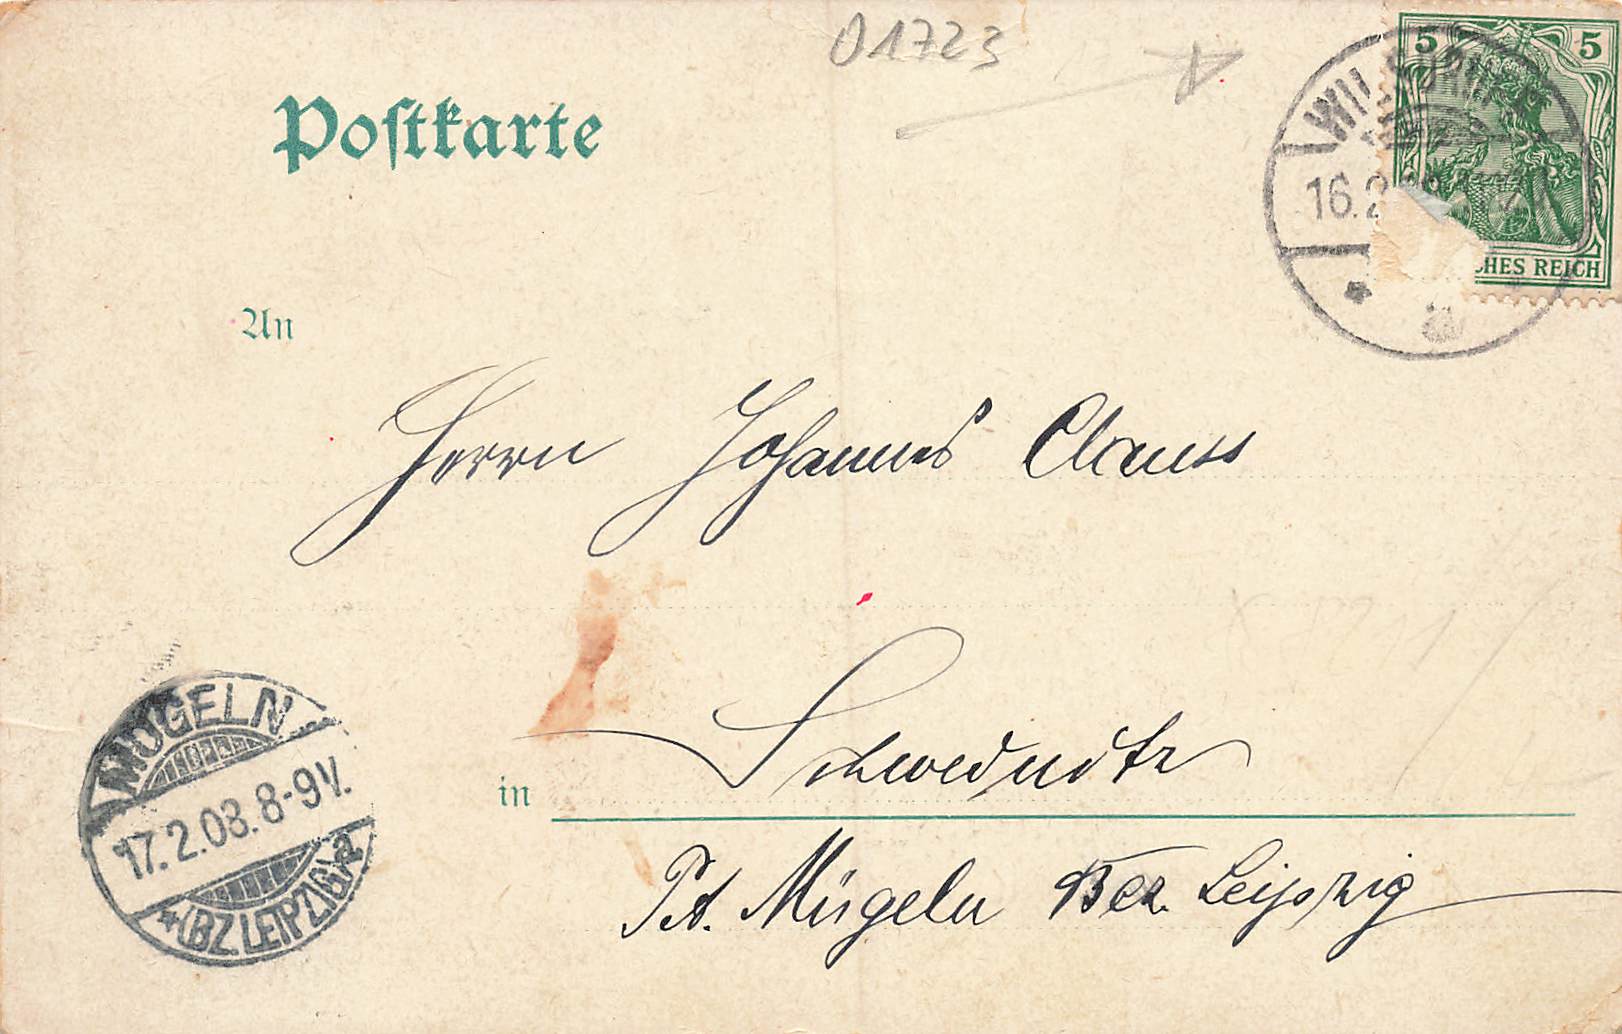 01723
Postkarte
5 5
16.2
CHES REICH
An
Herrn Johannes Clauss
in Schwednitz
Pst. Mügeln Bez. Leipzig
MÜGELN
17.2.03. 8-9V.
*(BZ. LEIPZIG) a